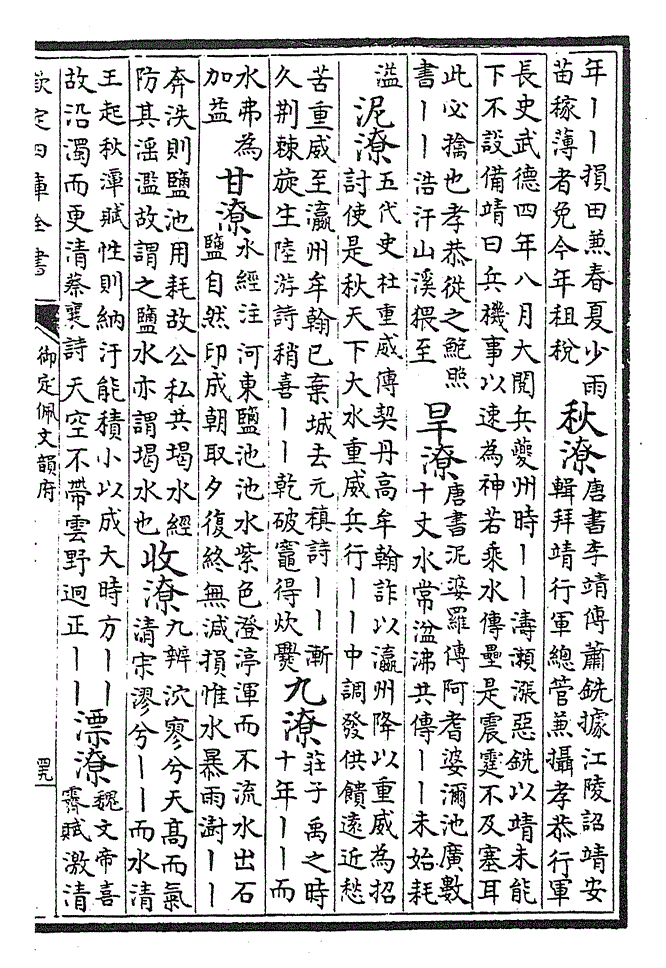 年丨丨損田兼春夏少雨
苗稼薄者免今年租稅
秋潦
唐書李靖傳蕭銑據江陵詔靖安
輯拜靖行軍總管兼攝孝恭行軍
長史武德四年八月大閱兵夔州時丨丨濤瀨漲惡銑以靖未能
下不設備靖曰兵機事以速為神若乘水傳壘是震霆不及塞耳
此必擒也孝恭從之鮑照
書丨丨浩汗山溪猥至
旱潦
唐書泥婆羅傳阿耆婆濔池廣數
十丈水常湓沸共傳丨丨未始耗
溢
泥潦
五代史杜重威傳契丹高牟翰詐以瀛州降以重威為招
討使是秋天下大水重威兵行丨丨中調發供饋遠近愁
苦重威至瀛州牟翰已棄城去元稹詩丨丨漸
久荆棘旋生陸游詩稍喜丨丨乾破竈得炊爨
九潦
莊子禹之時
十年丨丨而
水弗為
加益
甘潦
水經注河東鹽池池水紫色澄渟渾而不流水出石
鹽自然印成朝取夕復終無減損惟水暴雨澍丨丨
奔泆則鹽池用耗故公私共堨水經
防其滛濫故謂之鹽水亦謂堨水也
收潦
九辨泬寥兮天高而氣
清宋漻兮丨丨而水清
王起秋潭賦性則納汙能積小以成大時方丨丨
故沿濁而更清蔡襄詩天空不帶雲野逈正丨丨
漂潦
魏文帝喜
霽賦激清
欽定四庫全書
御定佩文韻府